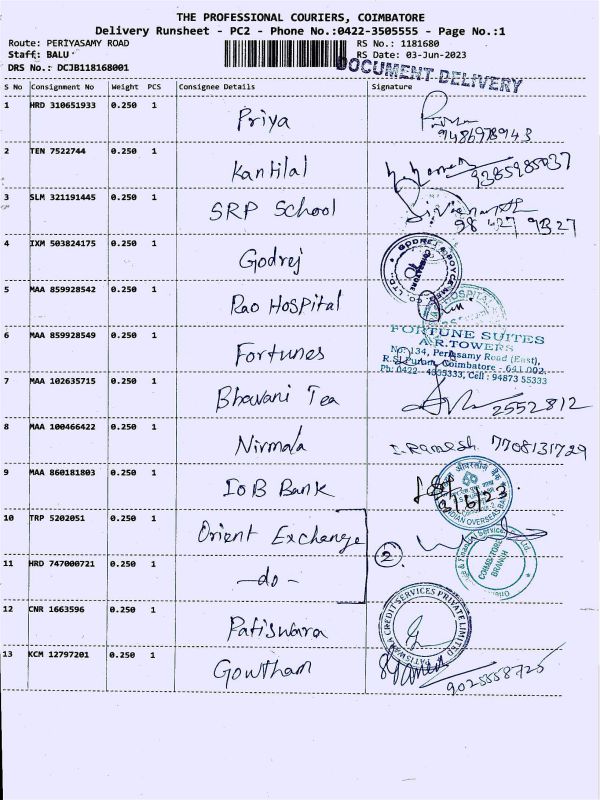 THE PROFESSIONAL COURIERS, COIMBATORE
Delivery Runsheet - PC2 - Phone No.:0422-3505555 - Page No.:1
Route: PERIYASAMY ROAD RS No.: 1181680
Staff: BALU RS Date: 03-Jun-2023
DRS No.: DCJB118168001
DOCUMENT DELIVERY
S No Consignment No Weight PCS Consignee Details Signature
1 HRD 310651933 0.250 1 Priya
9486978943
2 TEN 7522744 0.250 1 Kantilal
9385985037
3 SLM 321191445 0.250 1 SRP School
98 427 9327
4 IXM 503824175 0.250 1 Godrej GODREJ & BOYCE
5 MAA 859928542 0.250 1 Rao Hospital HOSPITAL
6 MAA 859928549 0.250 1 Fortunes FORTUNE SUITES
A.R.TOWERS
No: 134, Periasamy Road (East),
R.S. Puram, Coimbatore - 641 002.
Ph: 0422 - 4355333, Cell : 94873 55333
7 MAA 102635715 0.250 1 Bhavani Tea 2552812
8 MAA 100466422 0.250 1 Nirmala I. Ramesh 7708131729
9 MAA 860181803 0.250 1 IOB Bank 3/6/23
INDIAN OVERSEAS BANK
10 TRP 5202051 0.250 1 Orient Exchange
2 & Financial Services Ltd.
COIMBATORE BRANCH
11 HRD 747000721 0.250 1 -do-
12 CNR 1663596 0.250 1 Patiswara CREDIT SERVICES PRIVATE LIMITED
13 KCM 12797201 0.250 1 Gowtham
9025558725